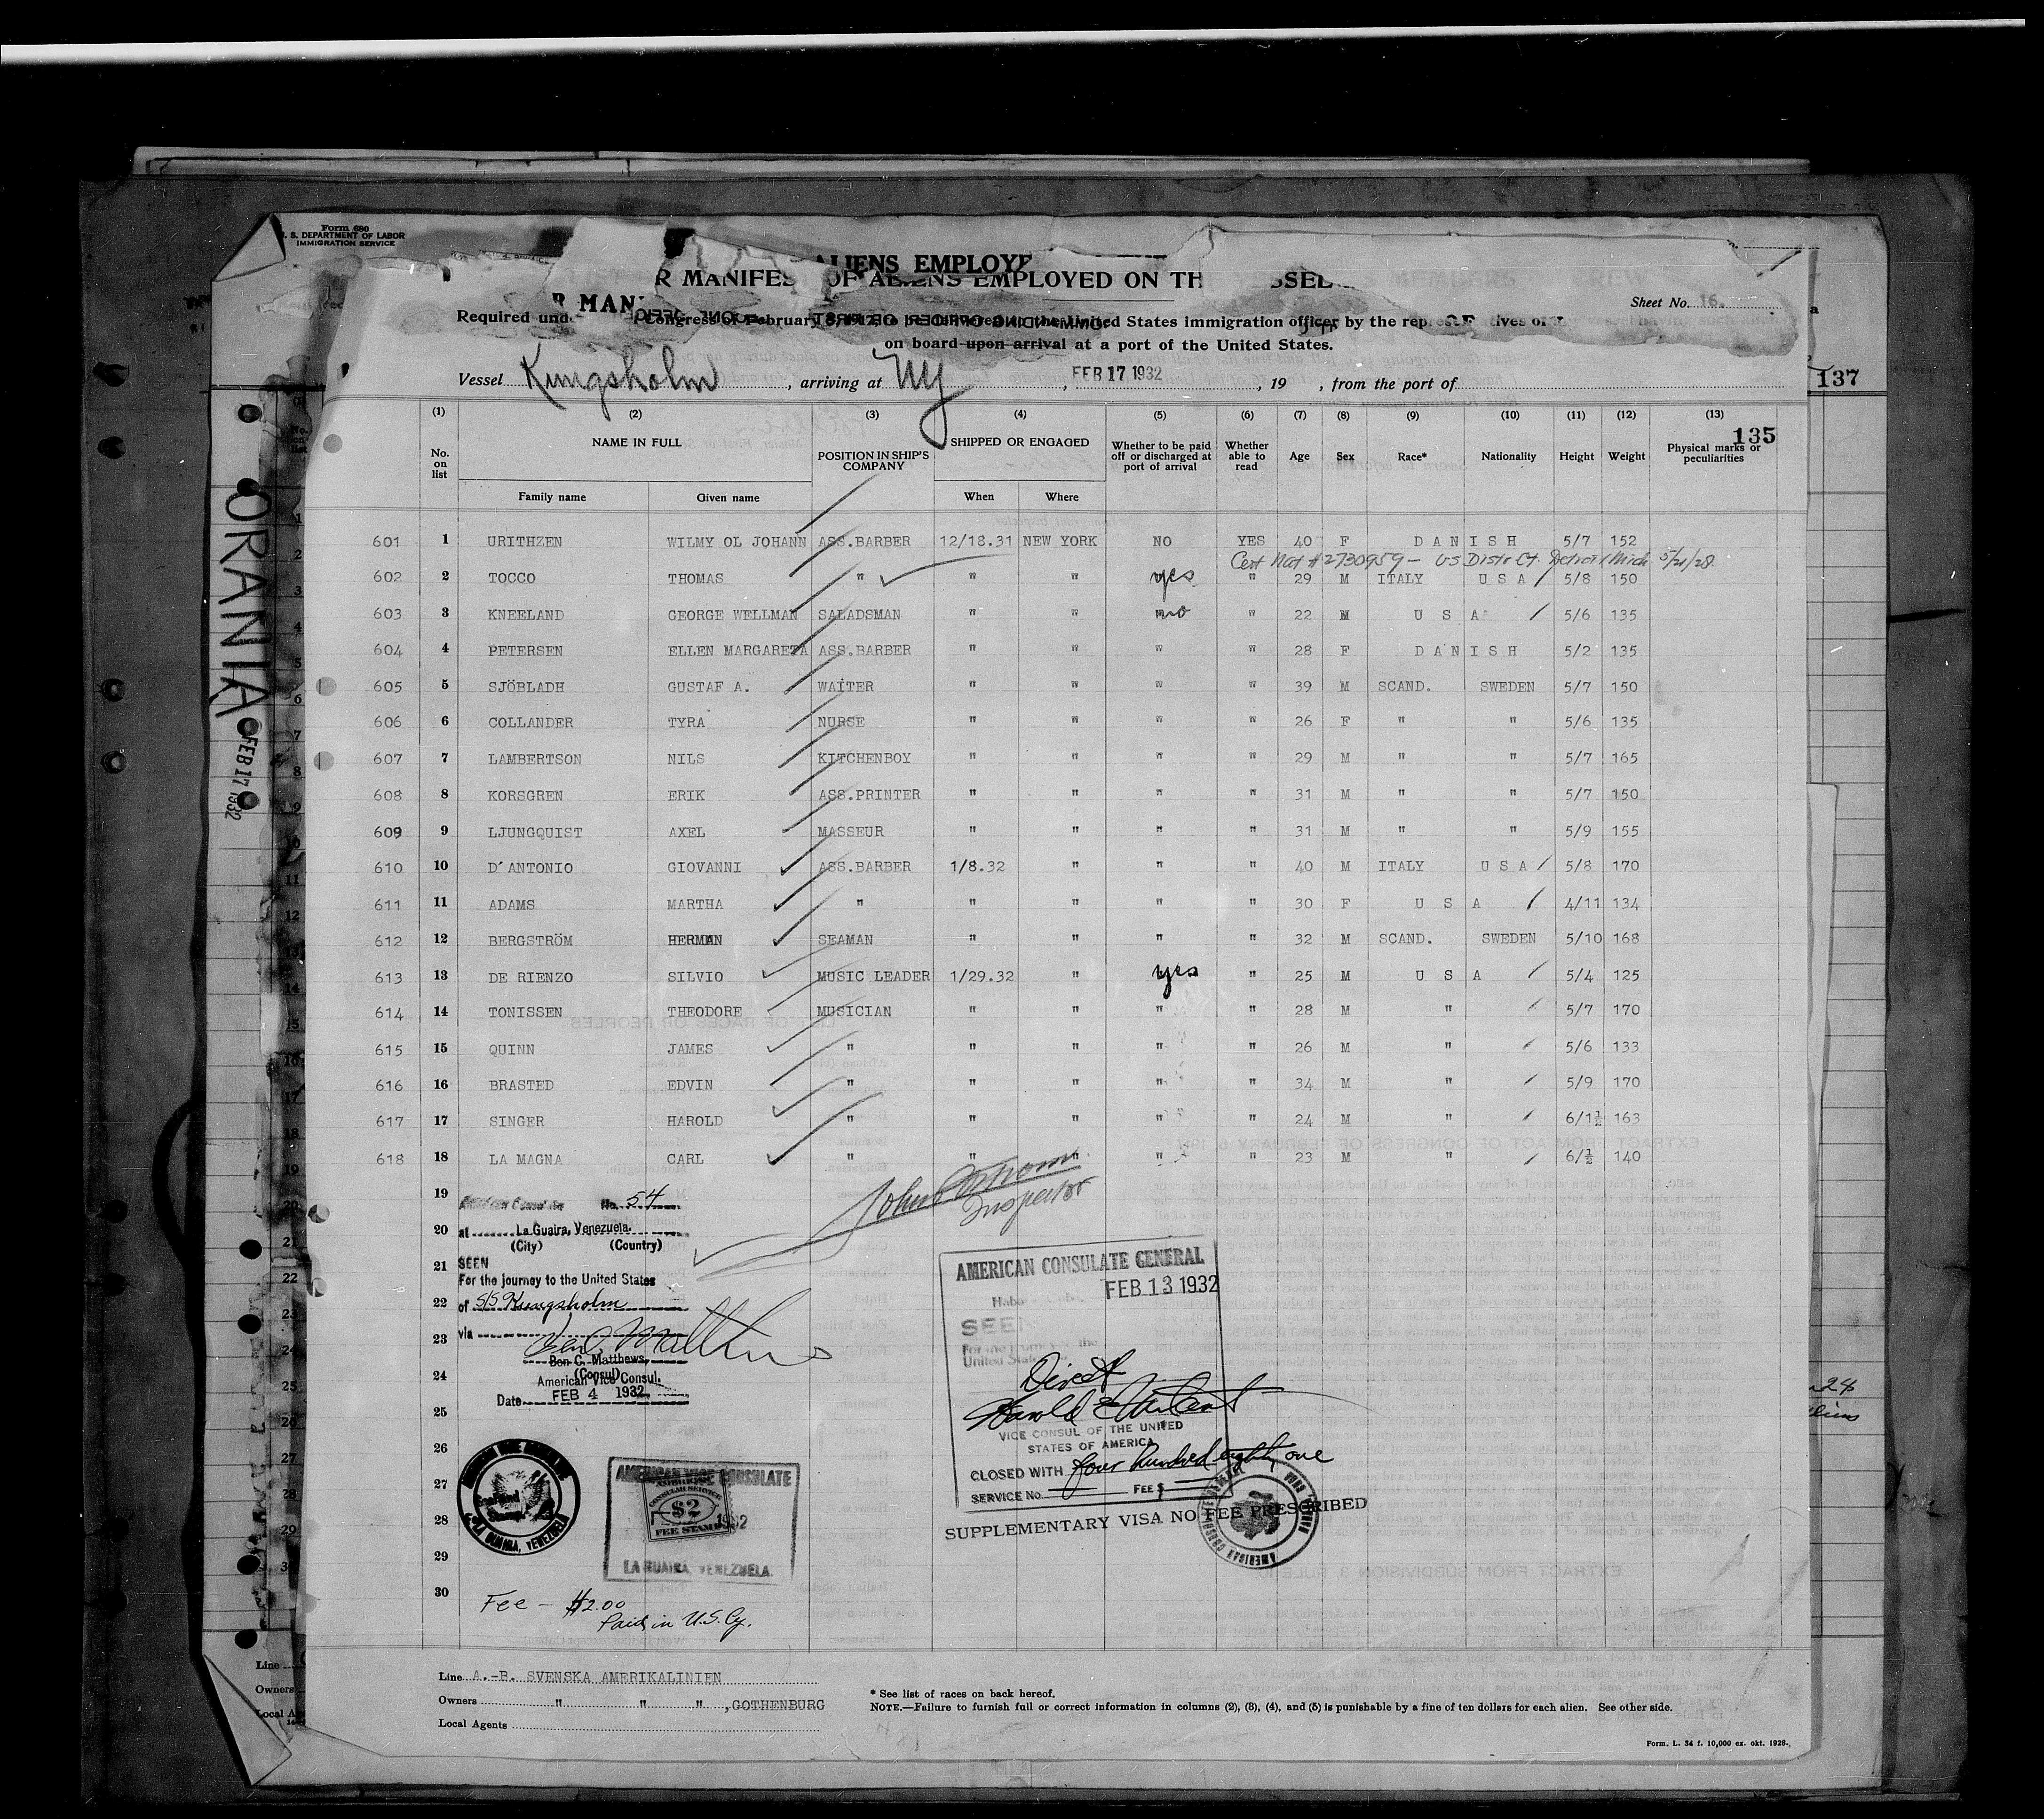 Form 680
U. S. DEPARTMENT OF LABOR
IMMIGRATION SERVICE
ALIENS EMPLOYE
R MANIFES OF ALIENS EMPLOYED ON TH SSEL
R MAN
Sheet No. 16.
Required und Congress of February the United States immigration officer by the rep tives of
on board upon arrival at a port of the United States.
Vessel Kungsholm, arriving at NY, FEB 17 1932, 19 , from the port of
137
135
(1) (2) (3) (4) (5) (6) (7) (8) (9) (10) (11) (12) (13)
No. on list NAME IN FULL POSITION IN SHIP'S COMPANY SHIPPED OR ENGAGED Whether to be paid off or discharged at port of arrival Whether able to read Age Sex Race* Nationality Height Weight Physical marks or peculiarities
Family name Given name When Where
601 1 URITHZEN WILMY OL JOHANN ASS.BARBER 12/18.31 NEW YORK NO YES 40 F DANISH 5/7 152
Cert Nat #2730959 - US Distr Ct. Detroit Mich 5/21/28
602 2 TOCCO THOMAS " " " yes " 29 M ITALY USA 5/8 150
603 3 KNEELAND GEORGE WELLMAN SALADSMAN " " no " 22 M USA 5/6 135
604 4 PETERSEN ELLEN MARGARETA ASS.BARBER " " " " 28 F DANISH 5/2 135
605 5 SJÖBLADH GUSTAF A. WAITER " " " " 39 M SCAND. SWEDEN 5/7 150
606 6 COLLANDER TYRA NURSE " " " " 26 F " " 5/6 135
607 7 LAMBERTSON NILS KITCHENBOY " " " " 29 M " " 5/7 165
608 8 KORSGREN ERIK ASS.PRINTER " " " " 31 M " " 5/7 150
609 9 LJUNGQUIST AXEL MASSEUR " " " " 31 M " " 5/9 155
610 10 D'ANTONIO GIOVANNI ASS.BARBER 1/8.32 " " " 40 M ITALY USA 5/8 170
611 11 ADAMS MARTHA " " " " " 30 F USA 4/11 134
612 12 BERGSTRÖM HERMAN SEAMAN " " " " 32 M SCAND. SWEDEN 5/10 168
613 13 DE RIENZO SILVIO MUSIC LEADER 1/29.32 " yes " 25 M USA 5/4 125
614 14 TONISSEN THEODORE MUSICIAN " " " " 28 M " 5/7 170
615 15 QUINN JAMES " " " " " 26 M " 5/6 133
616 16 BRASTED EDVIN " " " " " 34 M " 5/9 170
617 17 SINGER HAROLD " " " " " 24 M " 6/1½ 163
618 18 LA MAGNA CARL " " " " " 23 M " 6/½ 140
19
20
21
22
23
24
25
26
27
28
29
30
American Consulate No. 54
at La Guaira, Venezuela.
(City) (Country)
SEEN
For the journey to the United States
of S/S Kungsholm
via
Ben C. Matthews
Ben C. Matthews,
(Consul)
American Vice Consul.
Date FEB 4 1932
John
Inspector
AMERICAN CONSULATE GENERAL
FEB 13 1932
SEEN
United States
Direct
VICE CONSUL OF THE UNITED
STATES OF AMERICA
CLOSED WITH four hundred eighty one
SERVICE No. FEE $
SUPPLEMENTARY VISA NO FEE PRESCRIBED
LA GUAIRA, VENEZUELA
AMERICAN VICE CONSULATE
AMERICAN
CONSULAR SERVICE
$2
FEE STAMP
1932
LA GUAIRA, VENEZUELA.
Fee - $2.00
Paid in U.S. Cy.
Line A.-B. SVENSKA AMERIKALINIEN
Owners " " " , GOTHENBURG
Local Agents
* See list of races on back hereof.
NOTE.—Failure to furnish full or correct information in columns (2), (3), (4), and (5) is punishable by a fine of ten dollars for each alien. See other side.
Form. L. 34 f. 10,000 ex. okt. 1928.
ORANIA
FEB 17 1932
Line
Owners
Local A